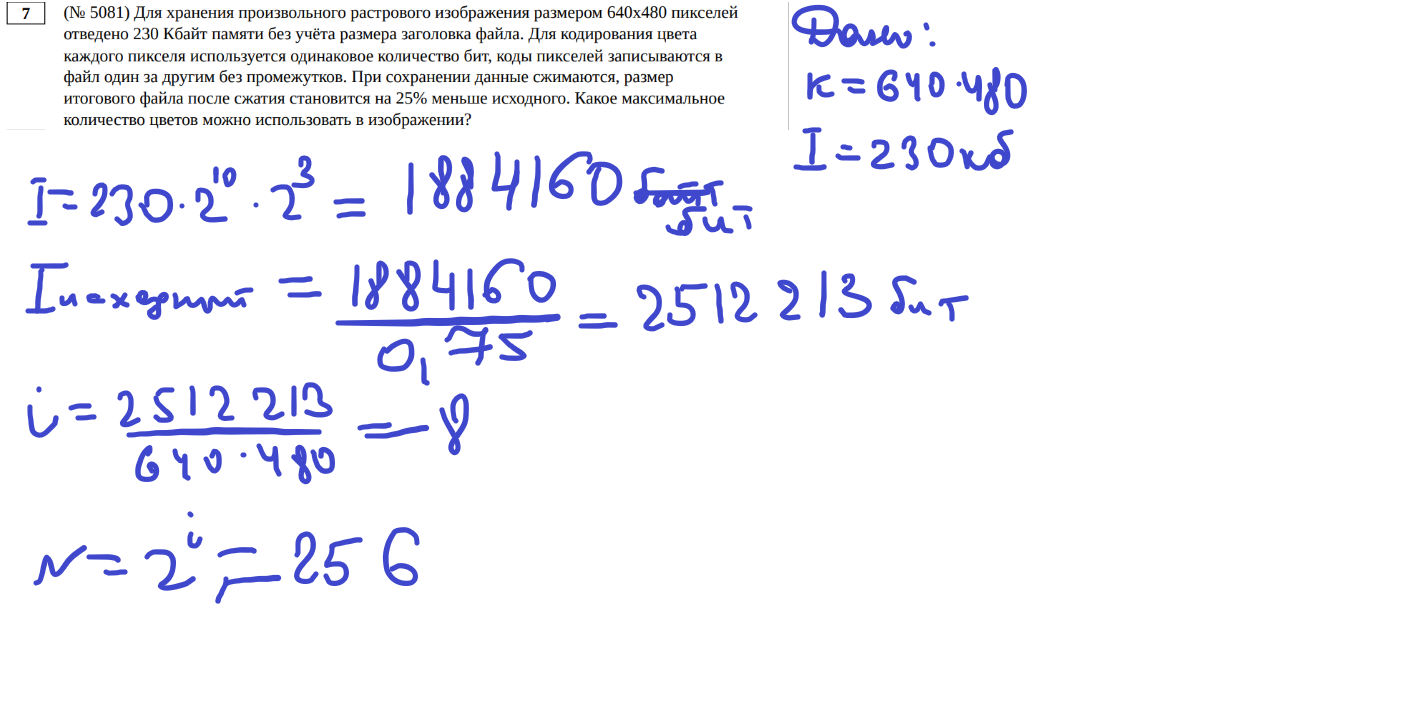 7
(№ 5081) Для хранения произвольного растрового изображения размером 640x480 пикселей
отведено 230 Кбайт памяти без учёта размера заголовка файла. Для кодирования цвета
каждого пикселя используется одинаковое количество бит, коды пикселей записываются в
файл один за другим без промежутков. При сохранении данные сжимаются, размер
итогового файла после сжатия становится на 25% меньше исходного. Какое максимальное
количество цветов можно использовать в изображении?
Дано:
K = 640·480
I = 230 кб
I = 230 · 2^10 · 2^3 = 1884160 бит
I исходный = 1884160 / 0,75 = 2512 213 бит
i = 2512 213 / 640·480 = 8
N = 2^i = 256